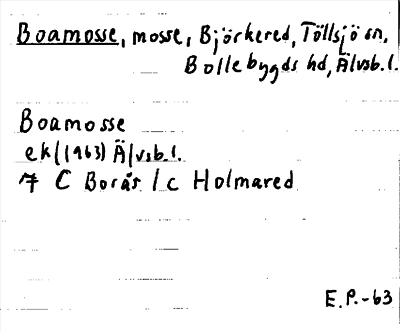 Boamosse, mosse, Björkered, Töllsjö sn,
Bollebygds hd, Älvsb. l.
Boamosse
ek (1963) Älvsb. l.
7 C Borås / c Holmared
E. P. -63